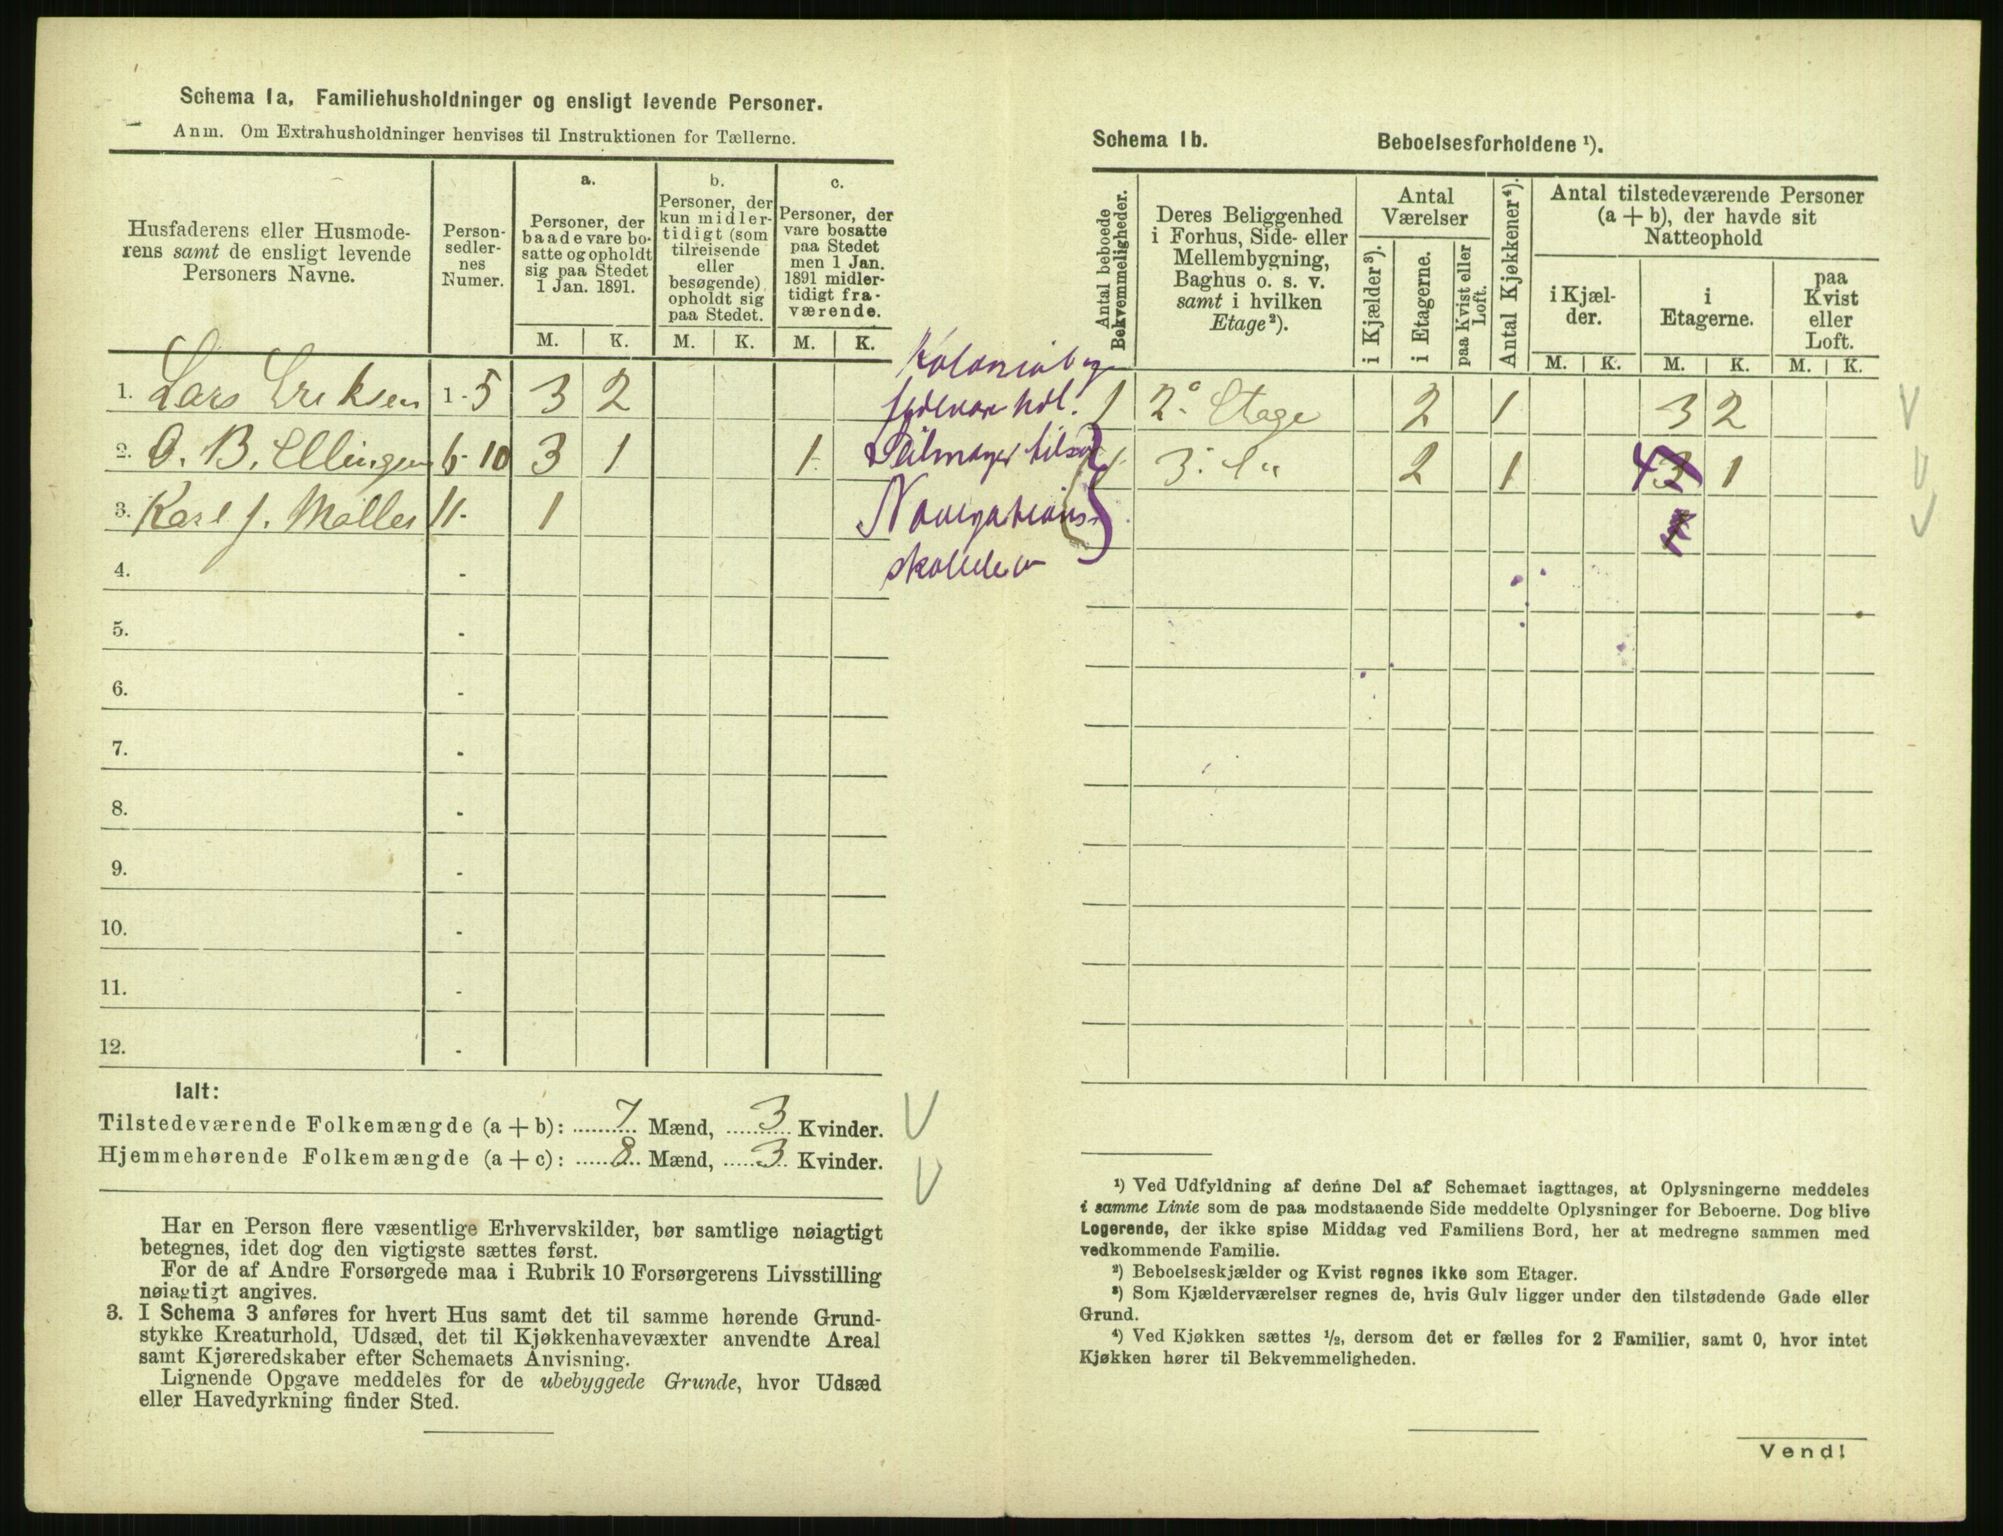 Schema 1a. Familiehusholdninger og ensligt levende Personer.
Anm. Om Extrahusholdninger henvises til Instruktionen for Tællerne.
Husfaderens eller Husmode-
rens samt de ensligt levende
Personers Navne.
Person-
sedler-
nes
Numer.
a.
Personer, der
baade vare bo-
satte og opholdt
sig paa Stedet
1 Jan. 1891.
b.
Personer, der
kun midler-
tidigt (som
tilreisende
eller
besøgende)
opholdt sig
paa Stedet.
c.
Personer, der
vare bosatte
paa Stedet
men 1 Jan.
1891 midler-
tidigt fra-
værende.
M. K. M. K. M. K.
1. Lars Eriksen 1-5 3 2
2. O. B. Ellingsen 6-10 3 1 1
3. Karl J. Møller 11- 1
4. -
5. -
6. -
7. -
8. -
9. -
10. -
11. -
12. -
Kolonial og
Navigations
Ialt:
Tilstedeværende Folkemængde (a + b): 7 Mænd, 3 Kvinder.
Hjemmehørende Folkemængde (a + c): 8 Mænd, 3 Kvinder.
Har en Person flere væsentlige Erhvervskilder, bør samtlige nøiagtigt
betegnes, idet dog den vigtigste sættes først.
For de af Andre Forsørgede maa i Rubrik 10 Forsørgerens Livsstilling
nøiagtigt angives.
3. I Schema 3 anføres for hvert Hus samt det til samme hørende Grund-
stykke Kreaturhold, Udsæd, det til Kjøkkenhavevæxter anvendte Areal
samt Kjøreredskaber efter Schemaets Anvisning.
Lignende Opgave meddeles for de ubebyggede Grunde, hvor Udsæd
eller Havedyrkning finder Sted.
Schema 1b. Beboelsesforholdene ¹).
Antal beboede
Bekvemmeligheder.
Deres Beliggenhed
i Forhus, Side- eller
Mellembygning,
Baghus o. s. v.
samt i hvilken
Etage ²).
Antal
Værelser
i Kjælder ³).
i Etagerne.
paa Kvist eller
Loft.
Antal Kjøkkener ⁴).
Antal tilstedeværende Personer
(a + b), der havde sit
Natteophold
i Kjæl-
der.
i
Etagerne.
paa
Kvist
eller
Loft.
M. K. M. K. M. K.
1 2. Etage 2 1 3 2
1 3. " 2 1 4 3 1
¹) Ved Udfyldning af denne Del af Schemaet iagttages, at Oplysningerne meddeles
i samme Linie som de paa modstaaende Side meddelte Oplysninger for Beboerne. Dog blive
Logerende, der ikke spise Middag ved Familiens Bord, her at medregne sammen med
vedkommende Familie.
²) Beboelseskjælder og Kvist regnes ikke som Etager.
³) Som Kjælderværelser regnes de, hvis Gulv ligger under den tilstødende Gade eller
Grund.
⁴) Ved Kjøkken sættes ½, dersom det er fælles for 2 Familier, samt 0, hvor intet
Kjøkken hører til Bekvemmeligheden.
Vend!